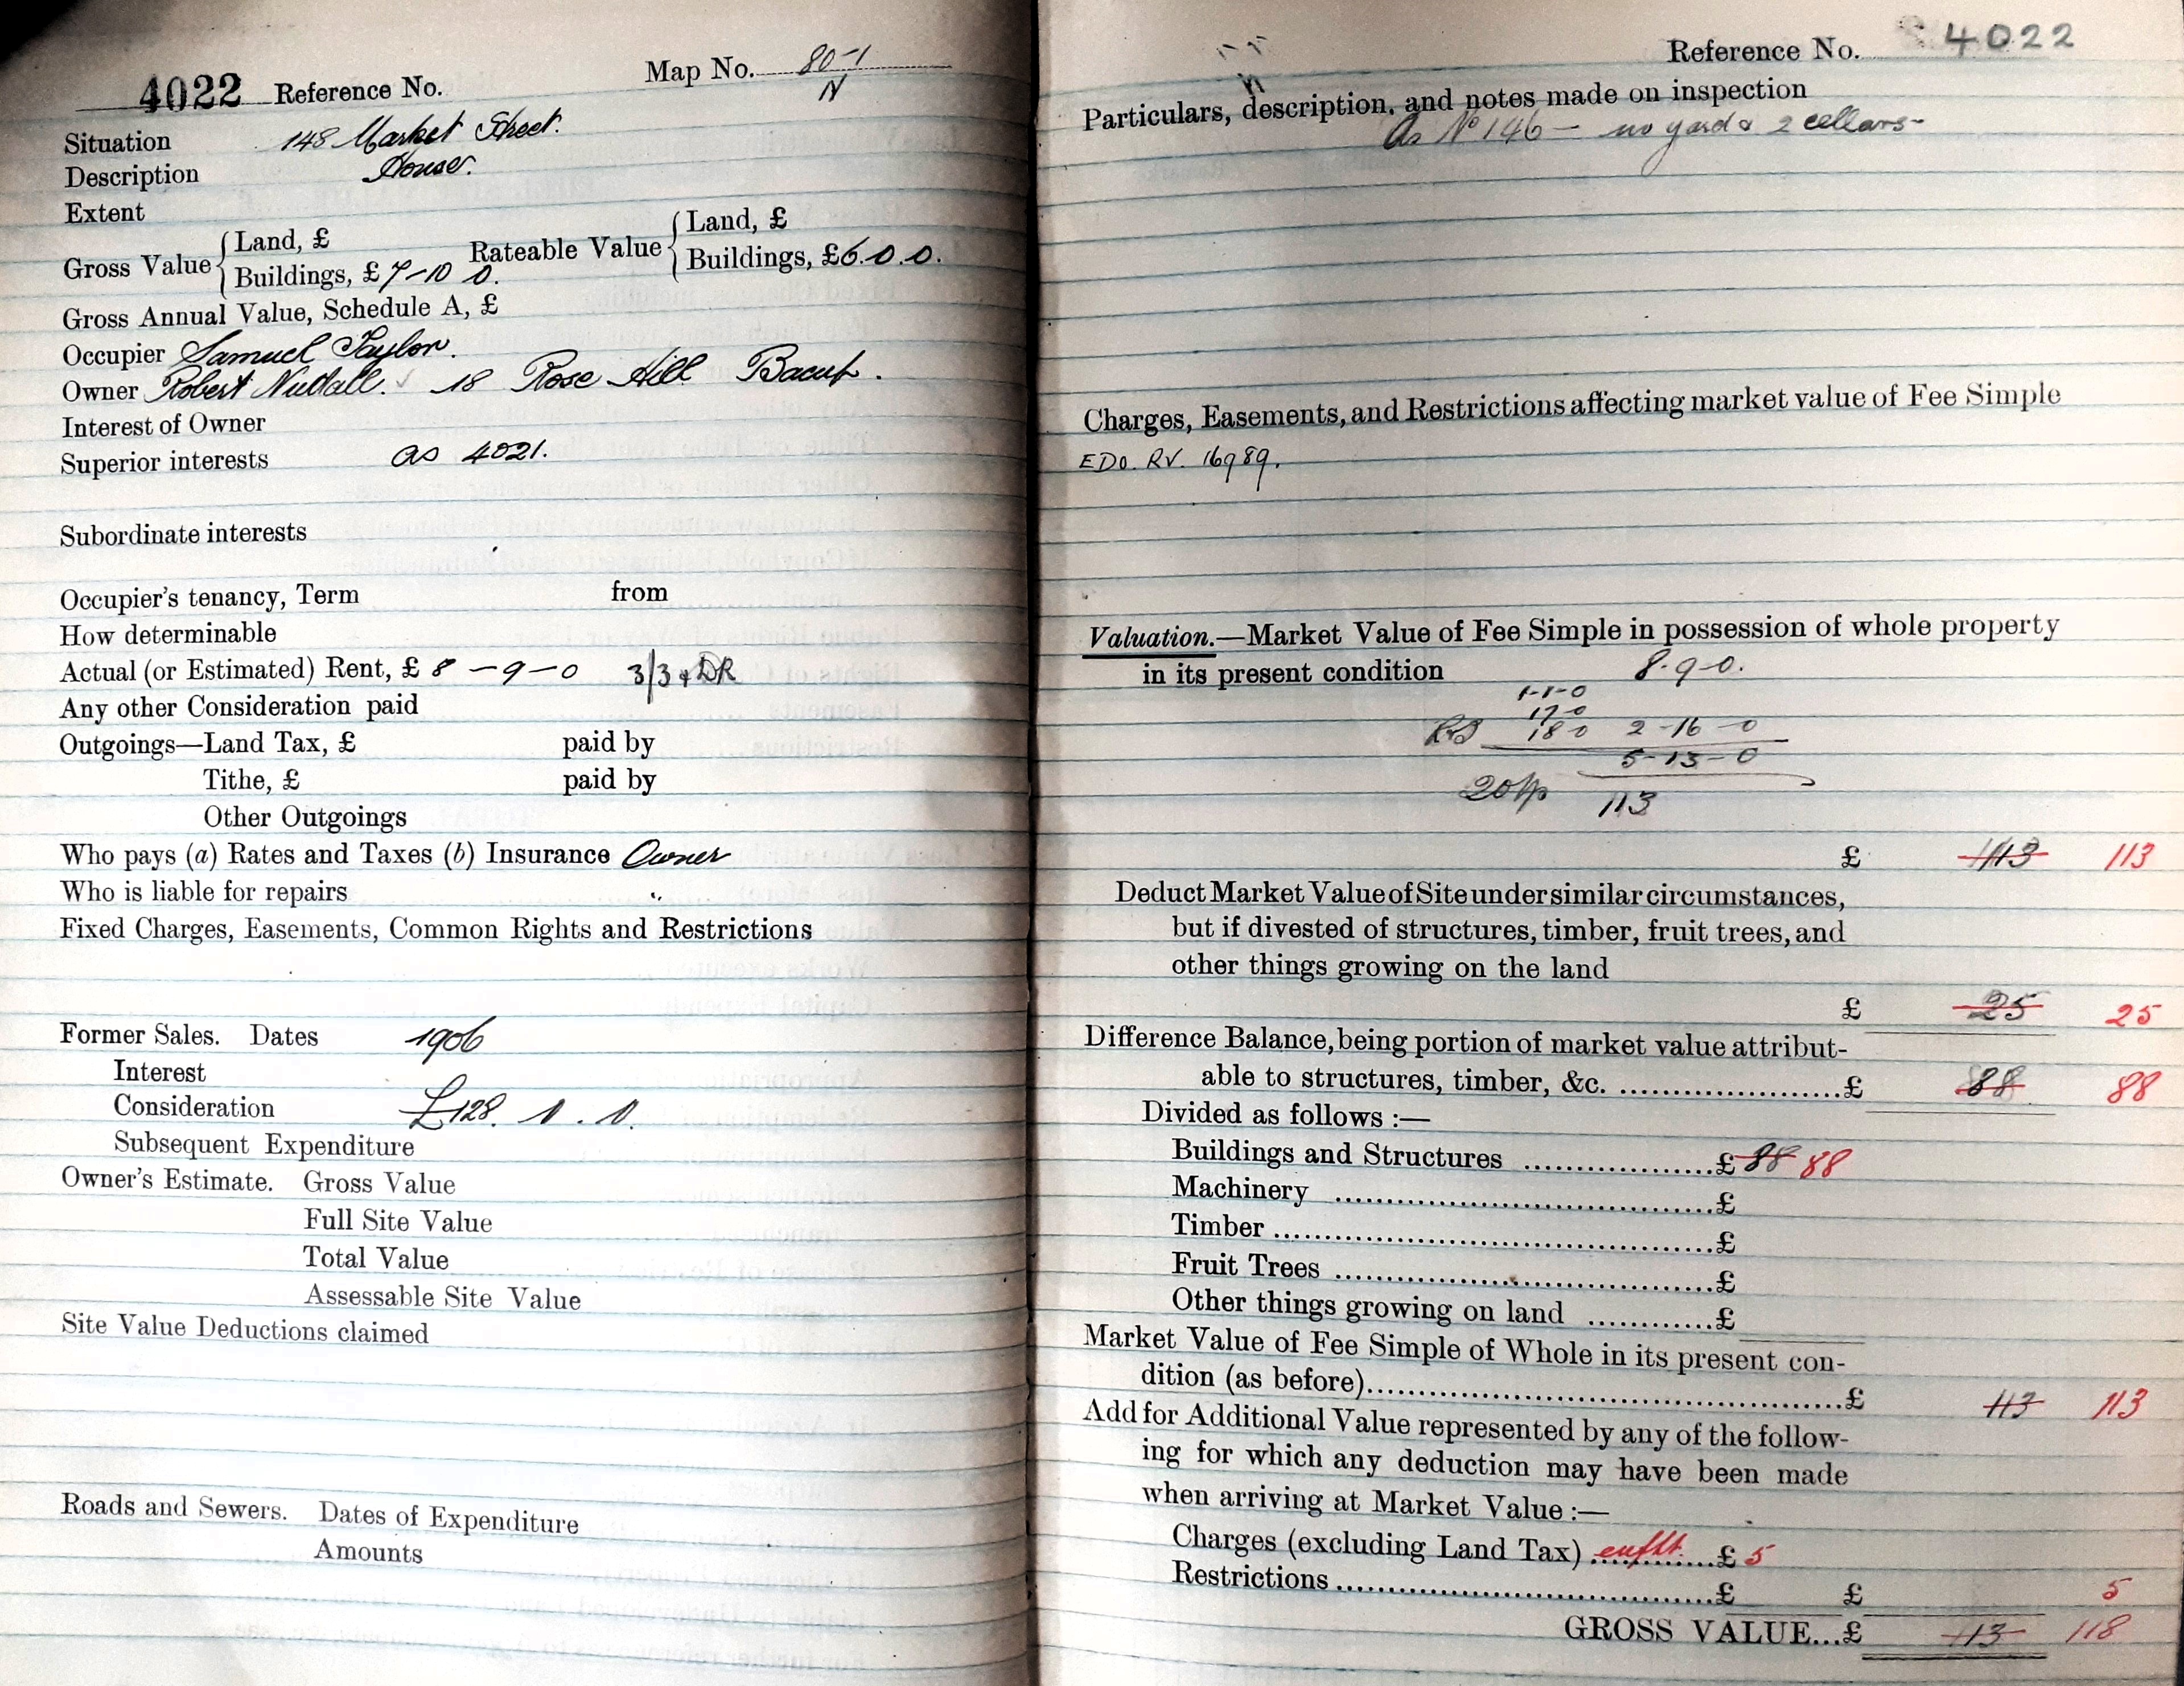 4022 Reference No. Map No. 80-1
N
Situation 148 Market Street.
Description House.
Extent
Gross Value { Land, £ Rateable Value { Land, £
Buildings, £ 7-10 0. Buildings, £6.0.0.
Gross Annual Value, Schedule A, £
Occupier Samuel Taylor.
Owner Robert Nuttall. ✓ 18 Rose Hill Bacup.
Interest of Owner
Superior interests as 4021.
Subordinate interests
Occupier's tenancy, Term from
How determinable
Actual (or Estimated) Rent, £ 8-9-0 3/3 + DR
Any other Consideration paid
Outgoings—Land Tax, £ paid by
Tithe, £ paid by
Other Outgoings
Who pays (a) Rates and Taxes (b) Insurance Owner
Who is liable for repairs "
Fixed Charges, Easements, Common Rights and Restrictions
Former Sales. Dates 1906
Interest
Consideration £128. 0. 0.
Subsequent Expenditure
Owner's Estimate. Gross Value
Full Site Value
Total Value
Assessable Site Value
Site Value Deductions claimed
Roads and Sewers. Dates of Expenditure
Amounts
Reference No. 4022
Particulars, description, and notes made on inspection
As No 146 - no yard & 2 cellars-
Charges, Easements, and Restrictions affecting market value of Fee Simple
EDO. RV. 16989.
Valuation.—Market Value of Fee Simple in possession of whole property
in its present condition 8.9-0.
1-1-0
17-0
18-0 2-16-0
5-13-0
20 113
£ 113 113
Deduct Market Value of Site under similar circumstances,
but if divested of structures, timber, fruit trees, and
other things growing on the land
£ 25 25
Difference Balance, being portion of market value attribut-
able to structures, timber, &c. ........................£ 88 88
Divided as follows :—
Buildings and Structures ....................£ 88 88
Machinery ........................................£
Timber ..............................................£
Fruit Trees ........................................£
Other things growing on land ............£
Market Value of Fee Simple of Whole in its present con-
dition (as before)....................................................£ 113 113
Add for Additional Value represented by any of the follow-
ing for which any deduction may have been made
when arriving at Market Value :—
Charges (excluding Land Tax) ............£ 5
Restrictions ........................................£ £ 5
GROSS VALUE...£ 113 118